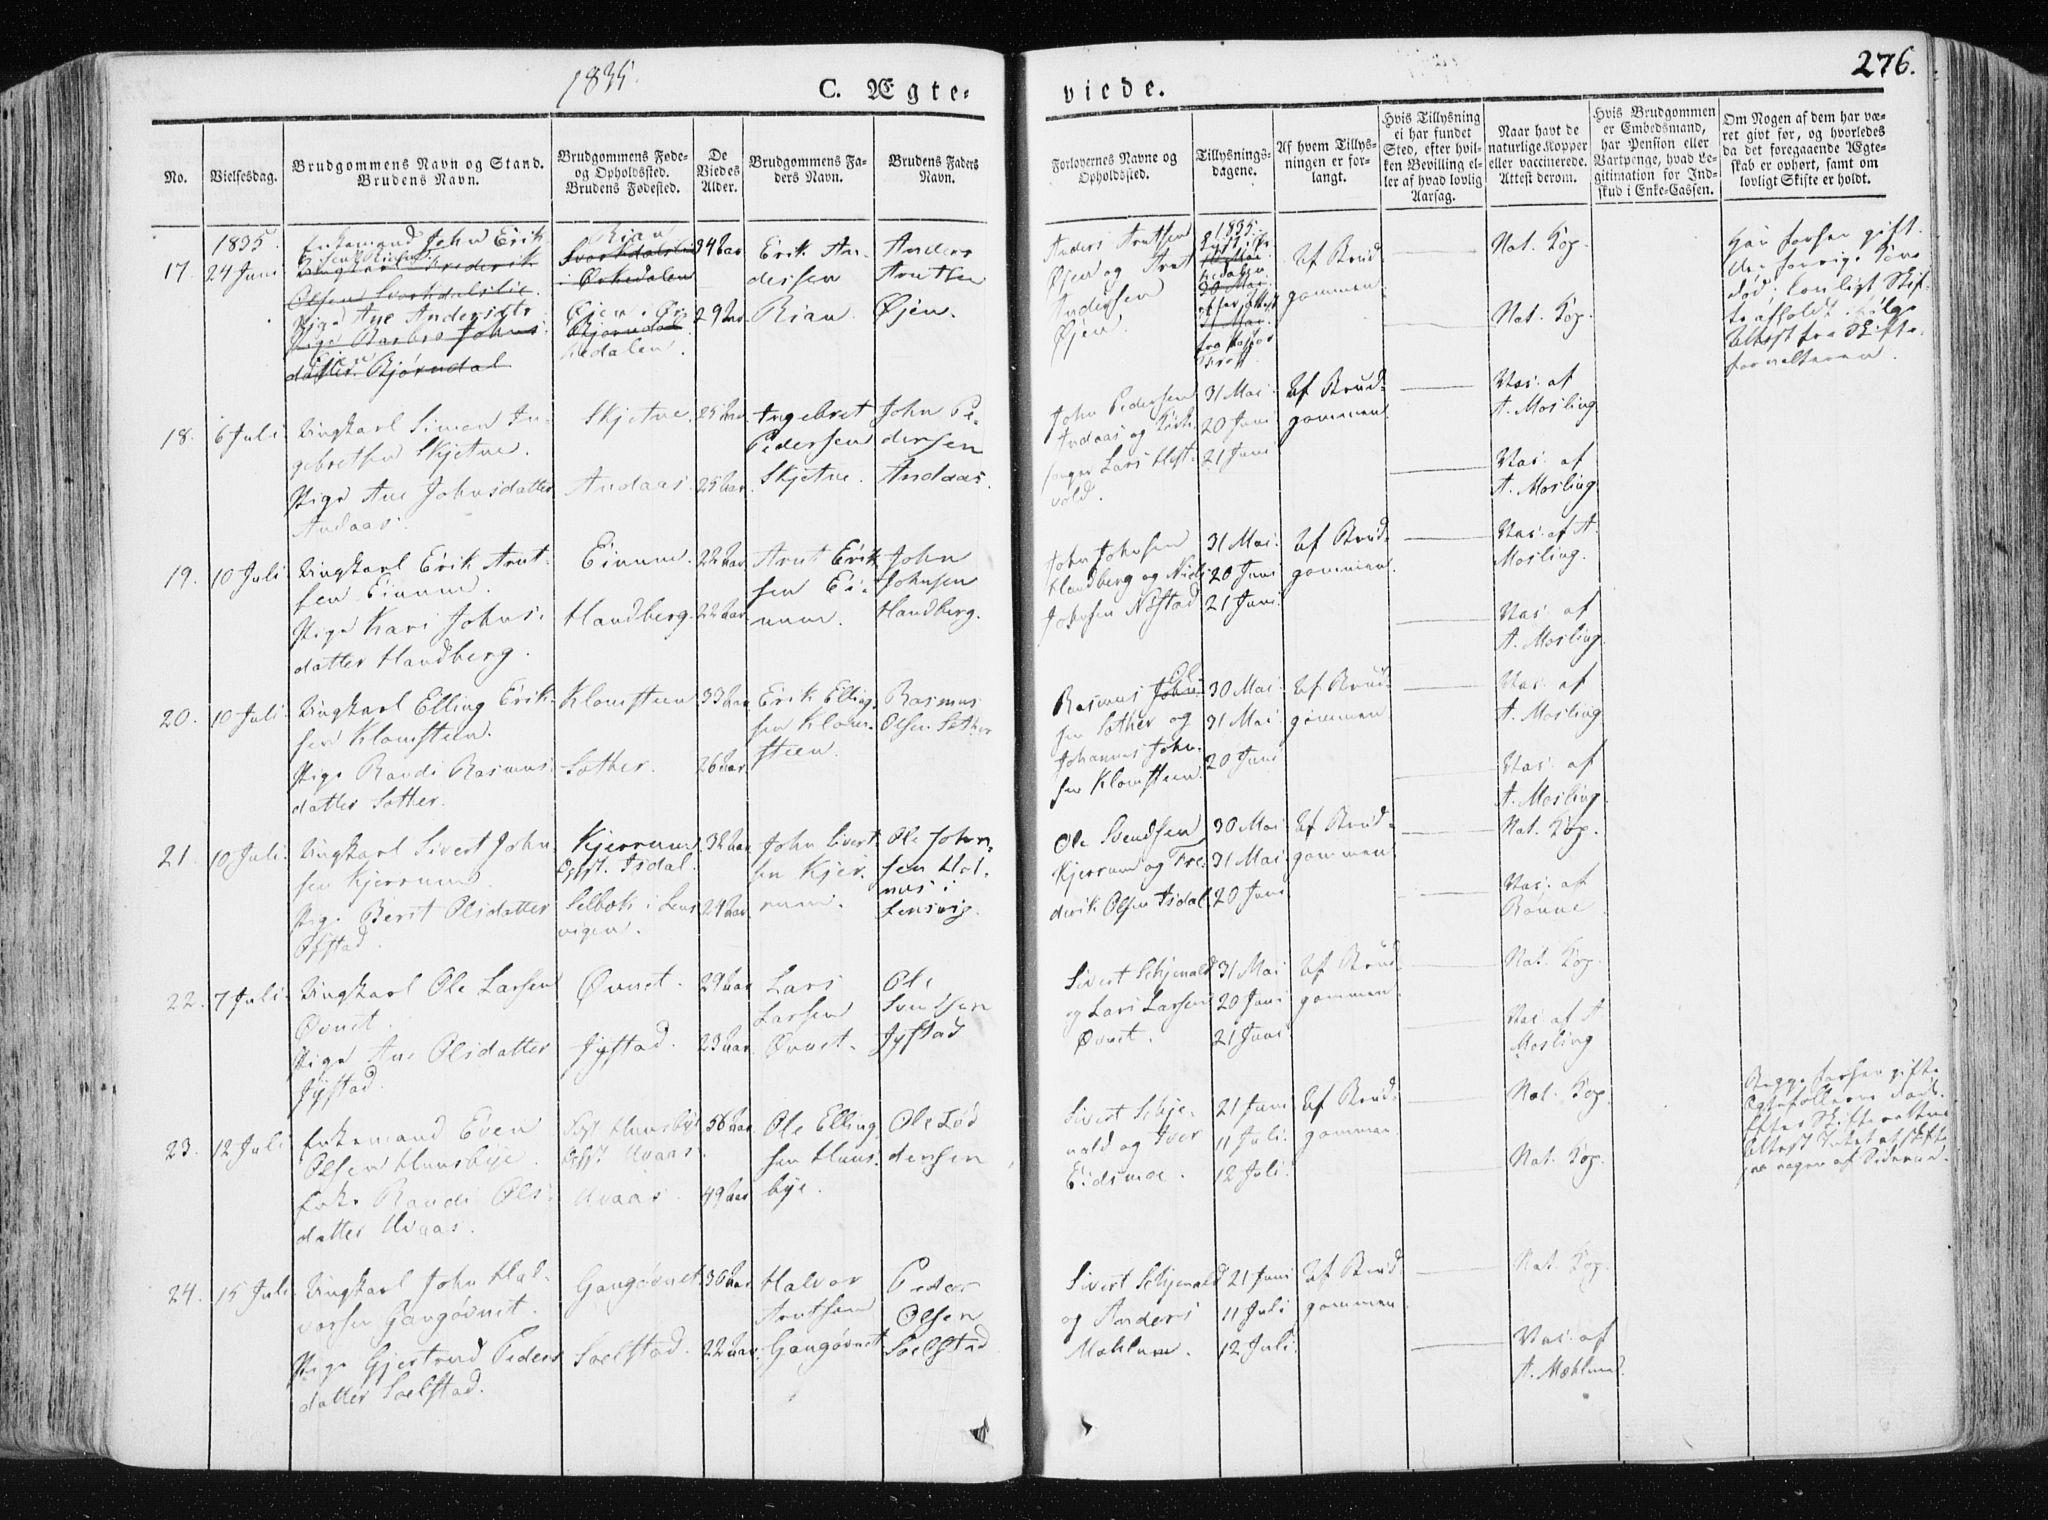 1835.
C. Ægte-
viede.
276.
No.
Vielsesdag.
Brudgommens Navn og Stand.
Brudens Navn.
Brudgommens Føde-
og Opholdssted.
Brudens Fødested.
De
Viedes
Alder.
Brudgommens Fa-
ders Navn.
Brudens Faders
Navn.
Forlovernes Navne og
Opholdssted.
Tillysnings-
dagene.
Af hvem Tillys-
ningen er for-
langt.
Hvis Tillysning
ei har fundet
Sted, efter hvil-
ken Bevilling el-
ler af hvad lovlig
Aarsag.
Naar havt de
naturlige Kopper
eller vaccinerede.
Attest derom.
Hvis Brudgommen
er Embedsmand,
har Pension eller
Vartpenge, hvad Le-
gitimation for Ind-
skud i Enke-Cassen.
Om Nogen af dem har væ-
ret givt før, og hvorledes
da det foregaaende Ægte-
skab er ophørt, samt om
lovligt Skifte er holdt.
17.
1835.
24 Juni
Enkemand John Erik
Ungkarl Frederik
Olsen Svorkdalslie
Pige Ane Andersdtr
Pige Barbro Johns
Øjen
datter Bjørndal
Rian
Svorkdalslie
i Orkedalen
Øjen i Or-
Bjørndal
kedalen.
34 Aar
29 Aar
Erik An-
dersen
Rian.
Anders
Arntsen
Øjen.
Anders Arntsen
Øjen og Arnt
Andersen
Øjen.
1835.
30 Mai
31 Mai
Af Brud-
gommen.
Nat. Kop.
Nat. Kop.
Har forhen gift.
den forrige Kone
død, lovligt Skif-
te afholdt ifølge
Attest fra Skifte-
forvalteren.
18.
6 Juli.
Ungkarl Simon In-
gebretsen Skjetne.
Pige Ane Johnsdatter
Andaas.
Skjetne
Andaas
25 Aar
25 Aar
Ingebret
Pedersen
Skjetne.
John Pe-
dersen
Andaas.
John Pedersen
Andaas og Kirk-
sanger Lars Hest-
vold.
31 Mai.
20 Juni
21 Juni
Af Brud-
gommen
Vac. af
A. Mosling
Vac. af
A. Mosling
19.
10 Juli
Ungkarl Erik Arnt-
sen Einum.
Pige Kari Johns-
datter Handberg.
Einum.
Handberg.
22 Aar
22 Aar
Arnt Erik
sen Ei-
num.
John
Johnsen
Handberg.
John Johnsen
Handberg og Niels
Johnsen Nøstad
31 Mai.
20 Juni
21 Juni.
Af Brud-
gommen.
Vac. af A.
Mosling.
Vac. af
A. Mosling.
20.
10 Juli.
Ungkarl Elling Erik-
sen Klomsteen.
Pige Randi Rasmus-
datter Sother.
Klomsteen
Sother.
33 Aar
26 Aar.
Erik Elling-
sen Klom-
steen.
Rasmus
Olsen Sother
Rasmus Ol-
sen Sother og
Johannes John-
sen Klomsteen.
30 Mai.
31 Mai.
20 Juni
Af Brud-
gommen
Vac. af
A. Mosling
Vac. af
A. Mosling.
21.
10 Juli.
Ungkarl Sivert John
sen Kjerrum.
Pige Berit Olsdatter
Kjerrum
Opst. Isdal.
Selbek i Lens
vigen.
32 Aar
24 Aar
John Sivert
sen Kjer-
rum.
Ole John-
sen Hol-
mes i
Lensvig.
Ole Svendsen
Kjerrum og Fre-
derik Olsen Isdal
30 Mai
31 Mai.
20 Juni
Af Brud-
gommen.
Nat. Kop.
Vac. af
Rønne
22.
7 Juli.
Ungkarl Ole Larsen
Øvnet.
Pige Ane Olsdatter
Jystad.
Øvnet.
Jystad.
29 Aar
23 Aar.
Lars
Larsen
Øvnet.
Ole
Svendsen
Jystad
Sivert Schjenald
og Lars Larsen
Øvnet.
31 Mai
20 Juni
21 Juni
Af Brud-
gommen
Nat. Kop.
Vac. af A
Mosling
23.
12 Juli
Enkemand Even
Olsen Hunsbye.
Enke Randi Ols-
datter Uvaas.
Hunsbye
Opst. Uvaas.
Uvaas.
56 Aar
49 Aar
Ole Elling-
sen Huns-
bye.
Ole Lod
densen
Sivert Schje-
nald og Iver
Eidsmoe.
21 Juni
11 Juli.
12 Juli.
Af Brud-
gommen
Nat. Kop.
Nat. Kop.
Begge forhen gifte.
Ægtefællerne døde.
24.
15 Juli
Ungkarl John Hal-
vorsen Gangøvnet.
Pige Gjertrud Peders
datter Soelstad.
Gangøvnet
Soelstad.
36 Aar
22 Aar.
Halvor
Arntsen
Gangøvnet
Peder
Olsen
Soelstad
Sivert Schjenald
og Anders
Mæhlum.
21 Juni
11 Juli
12 Juli.
Af Brud-
gommen.
Nat. Kop.
Vac. af
A. Mæhlum.